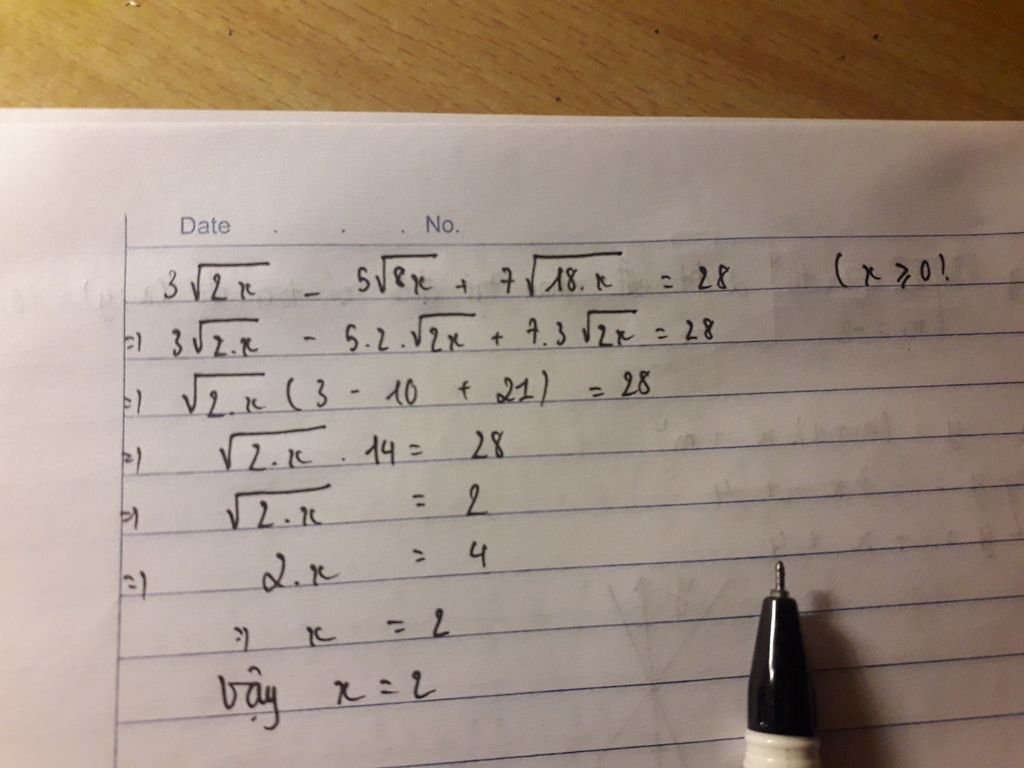 Date . . . No.
3√2x - 5√8x + 7√18.x = 28 (x ≥ 0!
=) 3√2.x - 5.2.√2x + 7.3√2x = 28
=) √2.x (3 - 10 + 21) = 28
=) √2.x . 14 = 28
=) √2.x = 2
=) 2.x = 4
=) x = 2
Vậy x = 2